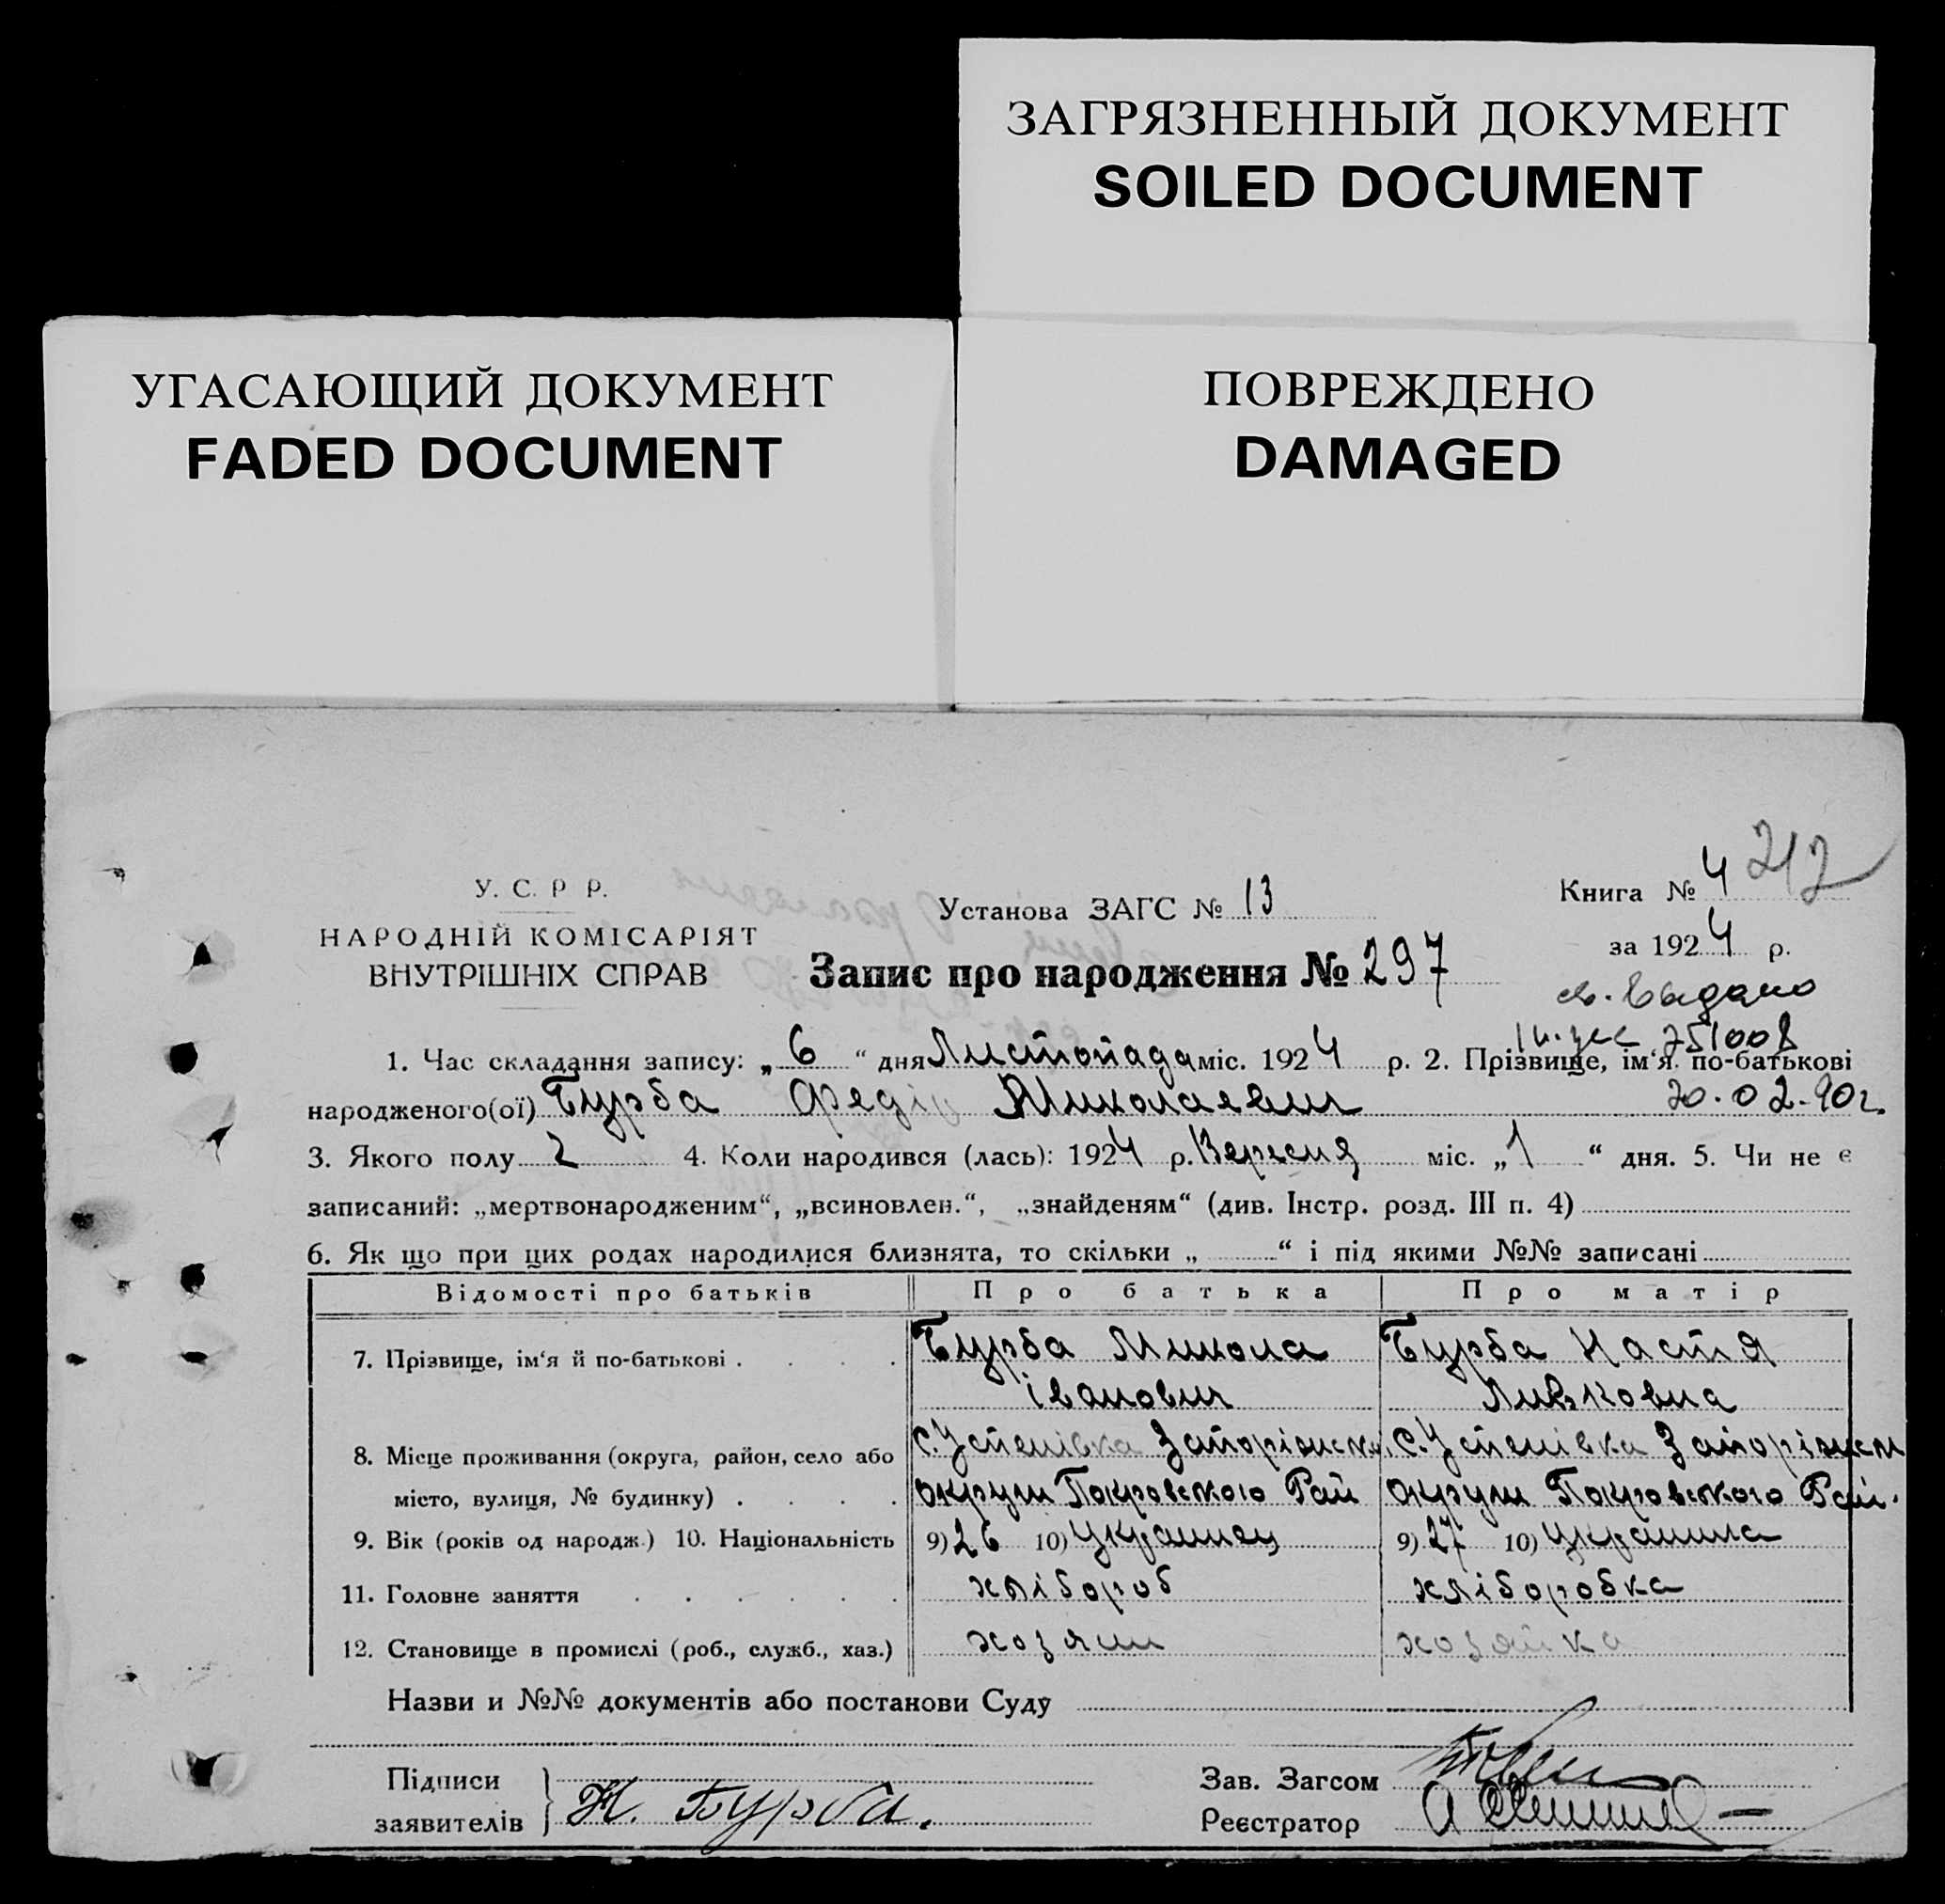 ЗАГРЯЗНЕННЫЙ ДОКУМЕНТ
SOILED DOCUMENT
УГАСАЮЩИЙ ДОКУМЕНТ
FADED DOCUMENT
ПОВРЕЖДЕНО
DAMAGED
212
У. С. Р Р.
НАРОДНІЙ КОМІСАРІЯТ
ВНУТРІШНІХ СПРАВ
Установа ЗАГС № 13
Запис про народження № 297
Книга № 4
за 1924 р.
св. выдано
751008
1. Час складання запису: „6“ дня Листопада міс. 1924 р. 2. Прізвище, ім‘я по-батькові
народженого(ої) Бурба Федір Миколаевич 20.02.90г.
3. Якого полу 2 4. Коли народився (лась): 1924 р. Вересня міс. „1“ дня. 5. Чи не є
записаний: „мертвонародженим“, „всиновлен.“, „знайденям“ (див. Інстр. розд. III п. 4)
6. Як що при цих родах народилися близнята, то скільки „ “ і під якими №№ записані
Відомості про батьків Про батька Про матір
7. Прізвище, ім‘я й по-батькові . . . . Бурба Микола Бурба Настя
Іванович Ливковна
8. Місце проживання (округа, район, село або С. Успенівка С. Успенівка
місто, вулиця, № будинку) . . . . Округи Покровського Рай Округи Покровського Рай.
9. Вік (років од народж.) 10. Національність 9) 26 10) Украинец 9) 27 10) Украинка
11. Головне заняття . . . . . . хлібороб хліборобка
12. Становище в промислі (роб., служб., хаз.) хозяин хозяйка
Назви и №№ документів або постанови Суду
Підписи
заявителів } Н. Бурба.
Зав. Загсом
Реєстратор